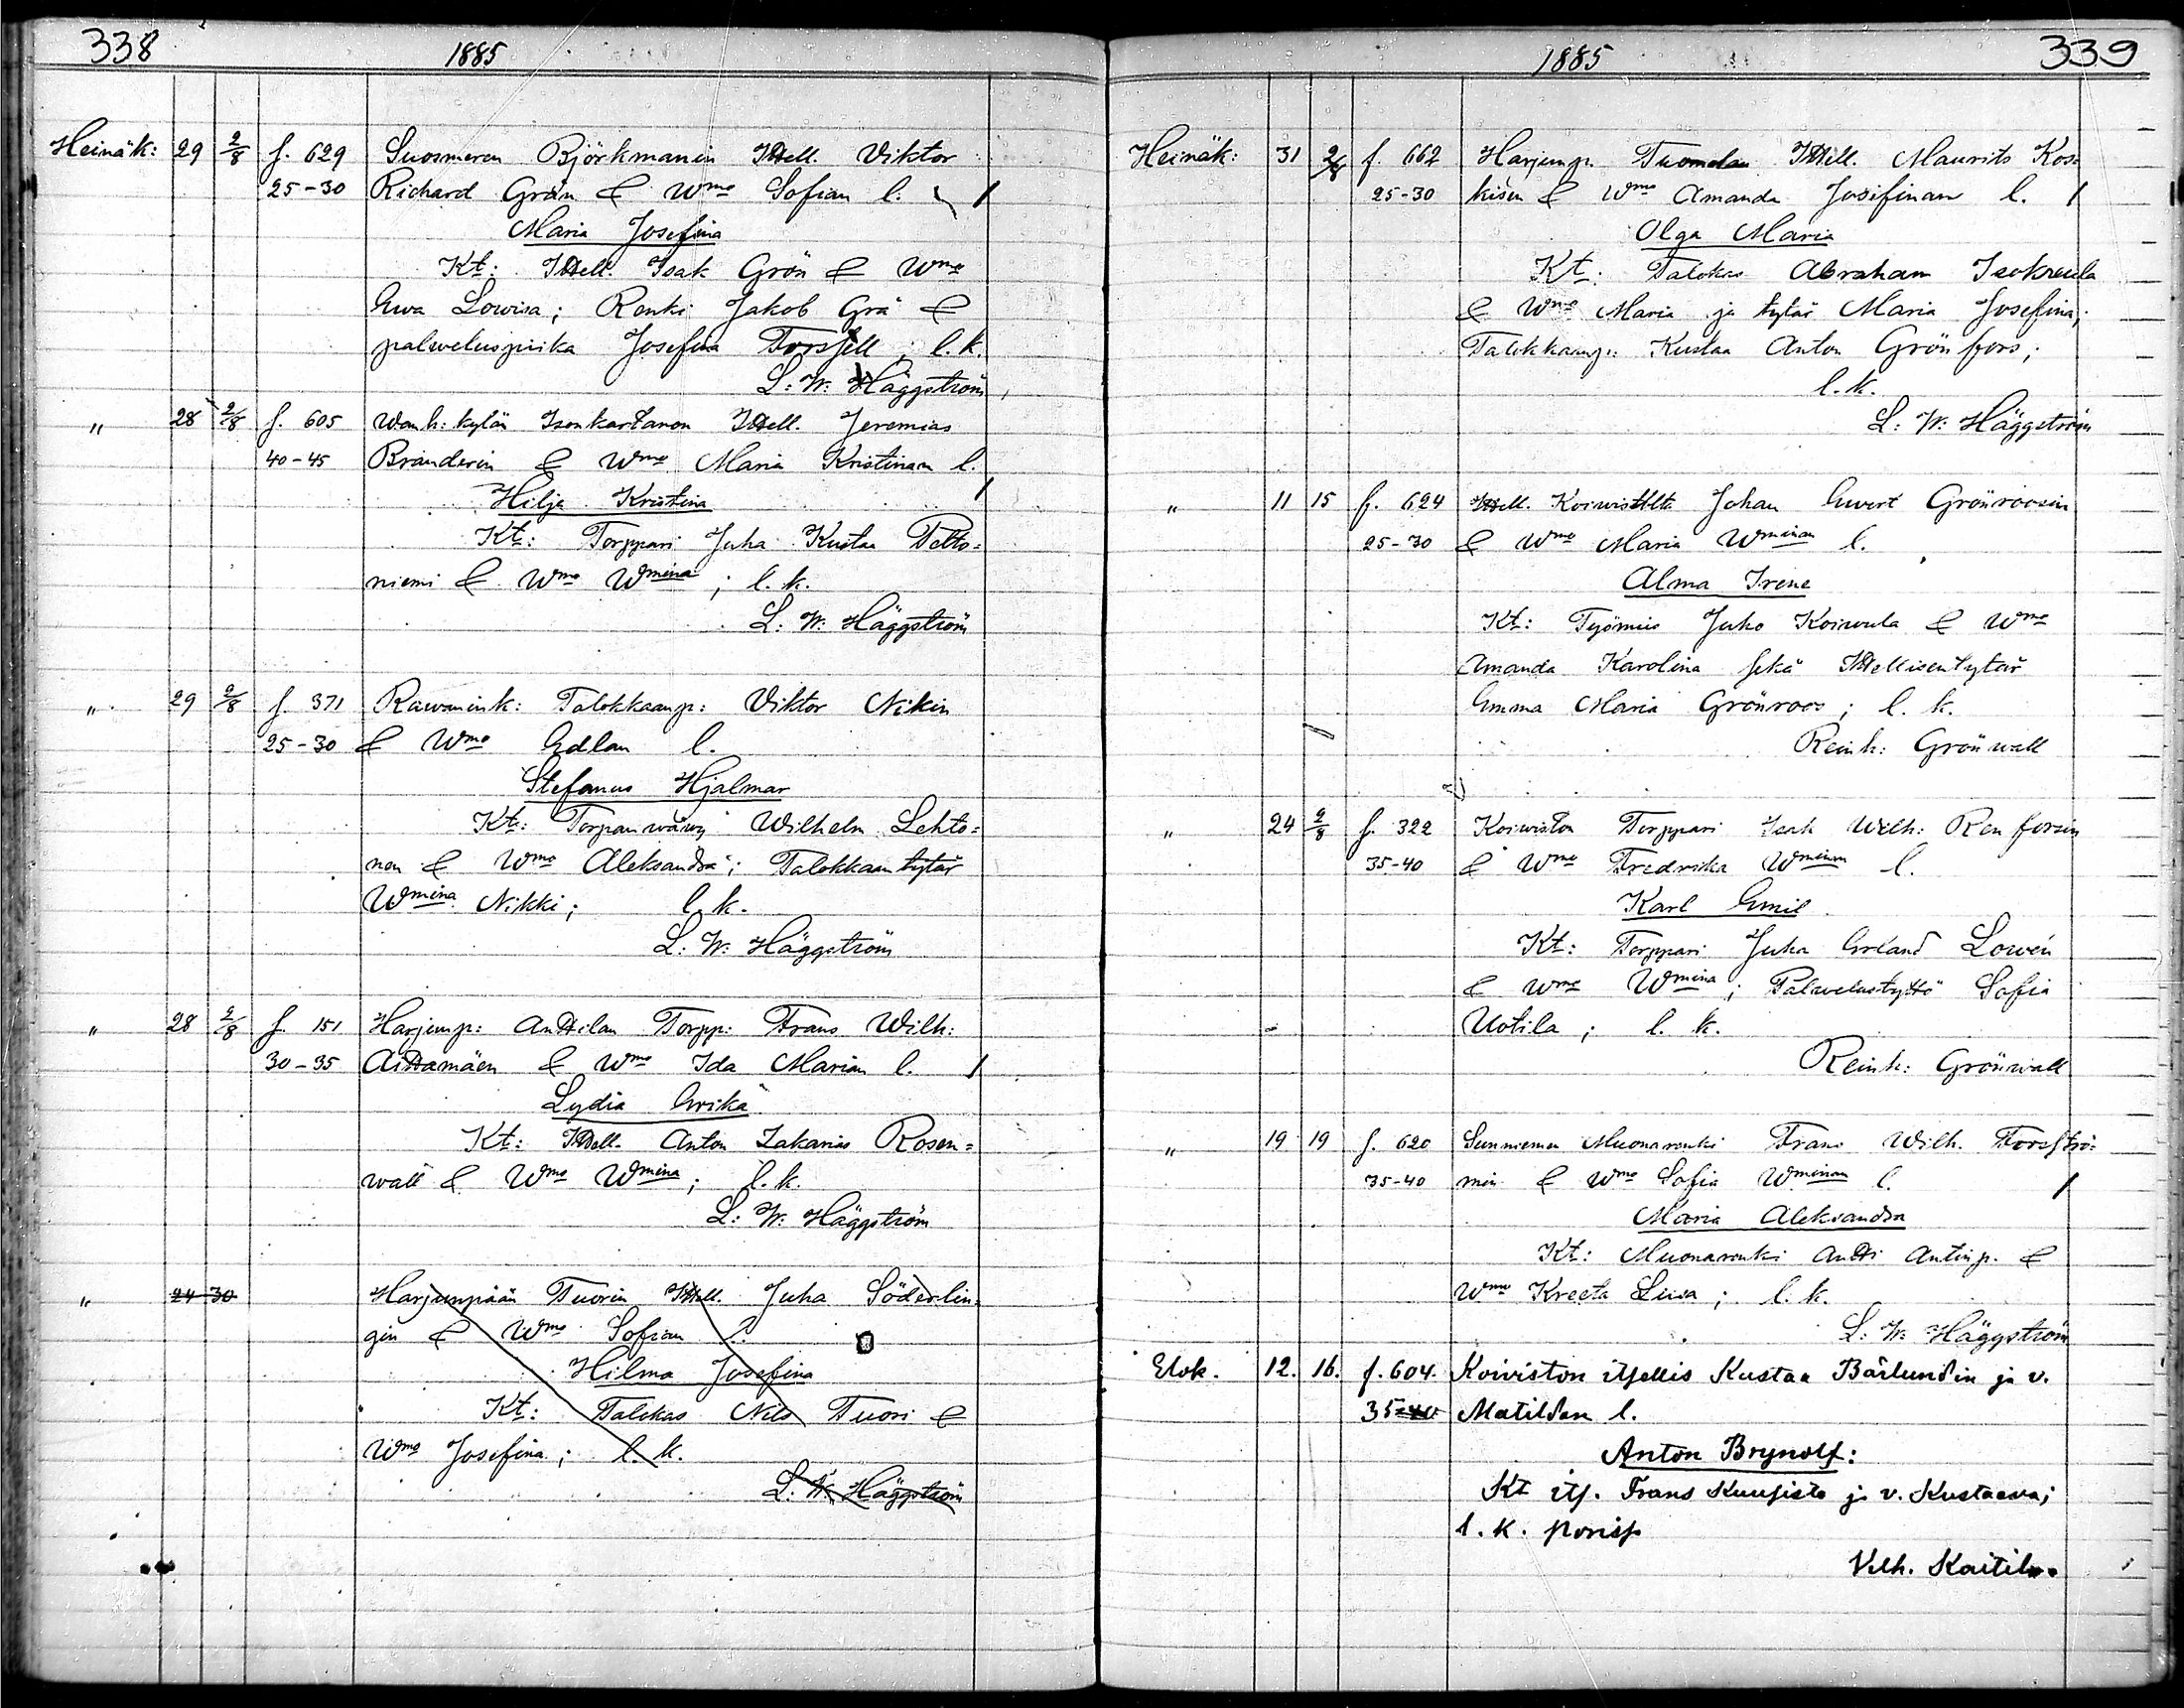 338
1885
Heinäk: 29 2/8 f. 629 Suosmeren Björkmanin Ittell. Viktor
25-30 Richard Grön & Wmo Sofian l.
Maria Josefina
Kt: Ittell. Isak Grön & Wmo
Ewa Lowisa; Renki Jakob Grö &
palweluspiika Josefina Forssell; l.k.
L: W: Häggström
" 28 2/8 f. 605 Wanh: kylän Isonkartanon Ittell. Jeremias
40-45 Branderin & Wmo Maria Kristinan l.
Hilja Kristina
Kt: Torppari Juha Kustaa Petto=
niemi & Wmo Wmina; l. k.
L. W: Häggström
" 29 2/8 f. 371 Rawanink: Talokkaanp: Viktor Nikin
25-30 & Wmo Edlan l.
Stefanus Hjalmar
Kt: Torpanwäwy Wilhelm Lehto=
nen & Wmo Aleksandra; Talokkaantytär
Wmina Nikki; l. k.
L: W: Häggström
" 28 2/8 f. 151 Harjunp: Anttilan Torpp: Frans Wilh:
30-35 Aittamäen & Wmo Ida Marian l.
Lydia Erika
Kt: Ittell. Anton Zakarias Rosen=
wall & Wmo Wmina; l. k.
L: W: Häggström
" 24 30 Harjunpään Tuorin Ittell. Juha Söderlin=
gin & Wmo Sofian l.
Hilma Josefina
Kt: Talokas Nils Tuori &
Wmo Josefina; l. k.
L. W: Häggström
1885
339
Heinäk: 31 2/8 f. 662 Harjunp. Tuomolan Ittell. Maurits Kos=
25-30 kisen & Wmo Amanda Josifinan l.
Olga Maria
Kt: Talokas Abraham Isokreula
& Wmo Maria ja tytär Maria Josefina;
Talokkaanp: Kustaa Anton Grönfors;
l. k.
L: W: Häggström
" 11 15 f. 624 Ittell. Koiwistolta Johan Ewert Grönroosin
25-30 & Wmo Maria Wminan l.
Alma Irene
Kt: Työmies Juho Koiwula & Wmo
Amanda Karolina sekä Ittellisentytär
Emma Maria Grönroos; l. k.
Reinh: Grönwall
" 24 2/8 f. 322 Koiwiston Torppari Isak Wilh: Renforsin
35-40 & Wmo Fredrika Wminan l.
Karl Emil
Kt: Torppari Juha Erland Lowén
& Wmo Wmina; Palwelustyttö Sofia
Uotila; l. k.
Reinh: Grönwall
" 19 19 f. 620 Sunniemen Muonarenki Frans Wilh. Forsströ=
35-40 min & Wmo Sofia Wminan l.
Maria Aleksandra
Kt: Muonarenki Antti Antinp. &
Wmo Kreeta Liisa; l. k.
L: W: Häggström
Elok. 12. 16. f. 604. Koiviston itsellis Kustaa Bärlundin ja v.
35-40 Matildan l.
Anton Brynolf:
Kt its. Frans Kuusisto ja v. Kustaava;
l. k. porisp
Vilh. Kaitila.